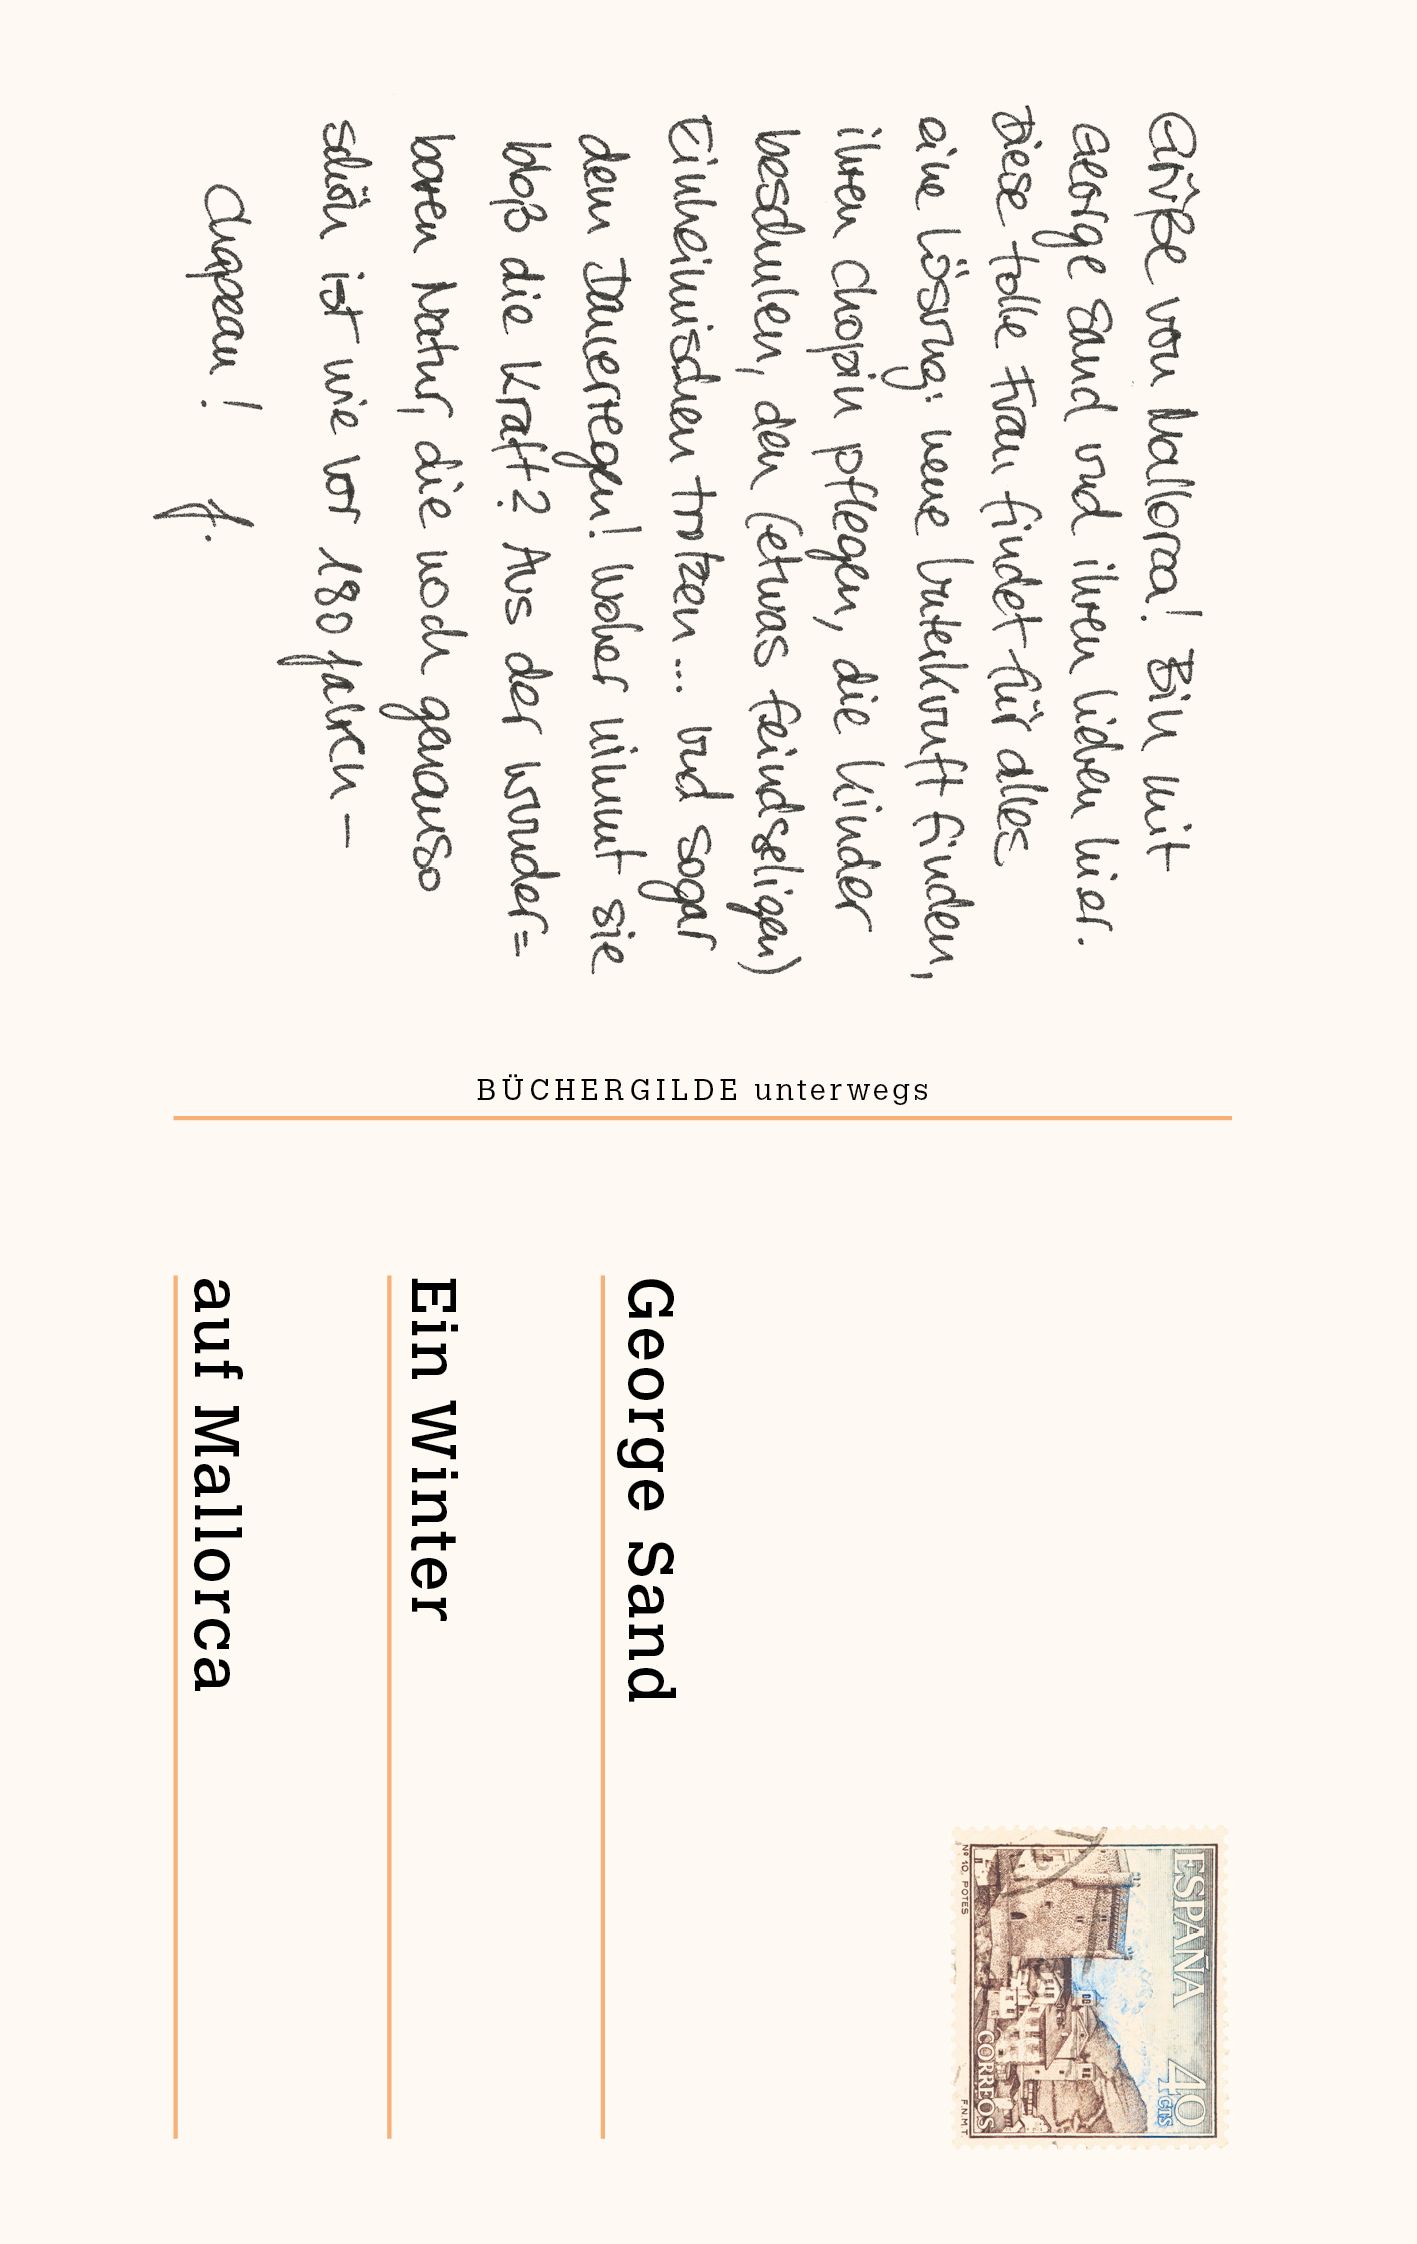 Grüße von Mallorca! Bin mit
George Sand und ihren Lieben hier.
Diese tolle Frau findet für alles
eine Lösung: neue Unterkunft finden,
ihren Chopin pflegen, die Kinder
beschulen, den (etwas feindseligen)
Einheimischen trotzen... und sogar
dem Dauerregen! Woher nimmt sie
bloß die Kraft? Aus der wunder=
baren Natur, die noch genauso
schön ist wie vor 180 Jahren –
Chapeau! J.
BÜCHERGILDE unterwegs
George Sand
Ein Winter
auf Mallorca
ESPAÑA 40 CTS
CORREOS
Nº 10. POTES
F.N.M.T